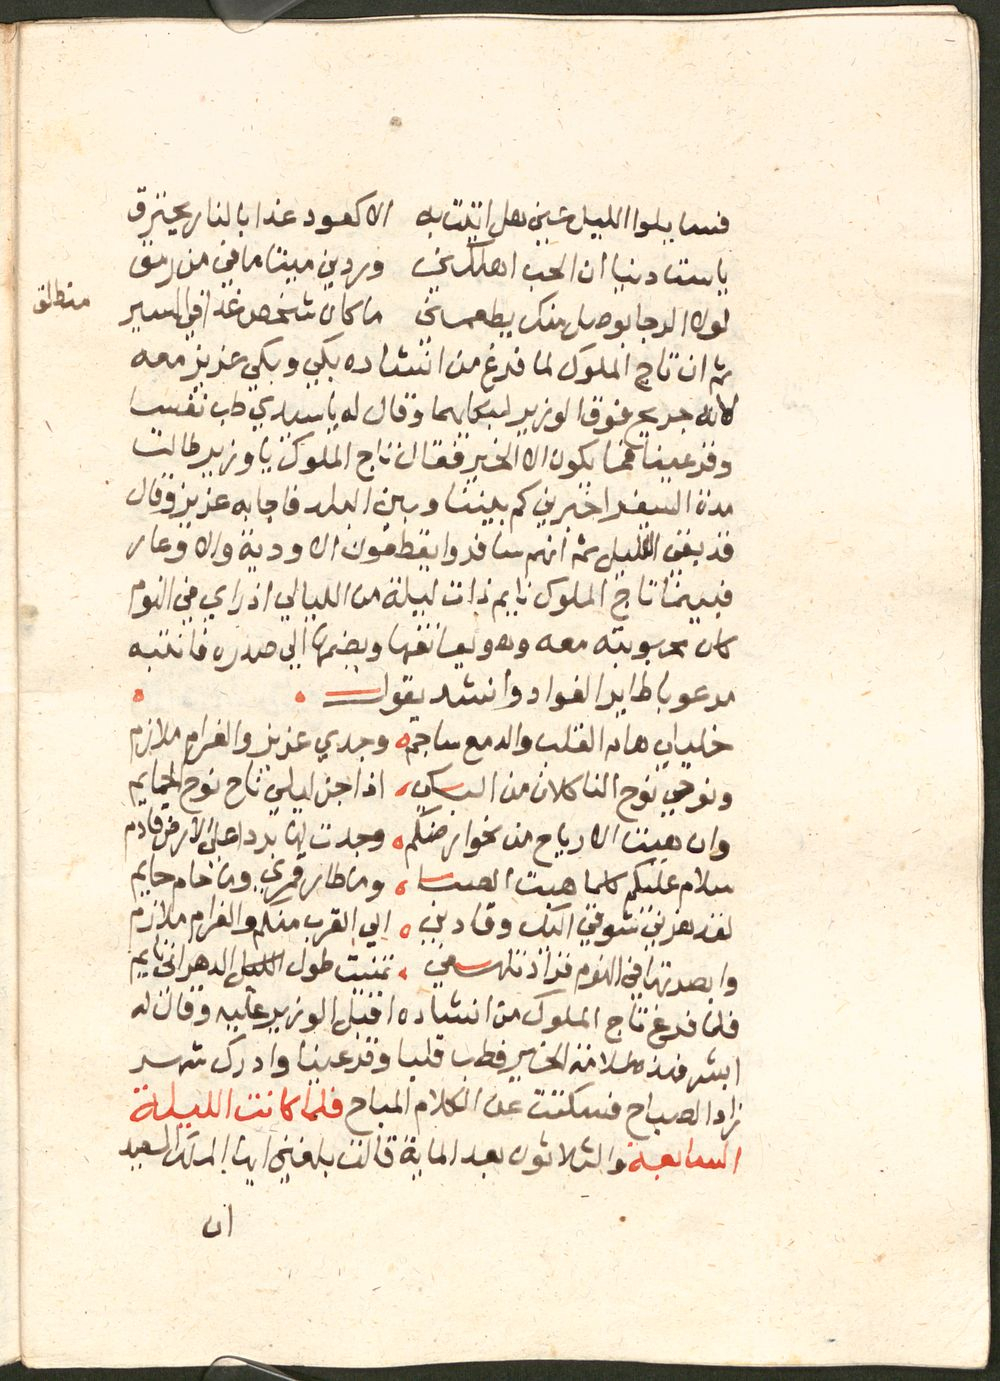 فسايلوا الليل عني هل اتيت به الا كعود غدا بالنار يحترق
يا ست دنيا ان الحب اهلكني وردين ميتا ما في من رمق
لولا الرجا بوصل منك يطعمني ما كان شخص غدا في السير
منطلق
ثم ان تاج الملوك لما فرغ من انشاده بكي وبكي عزيز معه
لانه جريح فرق الوزير لبكايهما وقال له يا سيدي طب نفسا
وقر عينا فما يكون الا الخير فقال تاج الملوك يا وزير طالت
مدة السفر اخبرني كم بيننا وبين البلد فاجابه عزيز وقال
قد بقي القليل ثم انهم سافروا يقطعون الاودية والاوعار
فبينما تاج الملوك نايم ذات ليلة من الليالي اذ راي في النوم
كان محبوبته معه وهو يعانقها ويضمها الي صدره فانتبه
مرعوبا طاير الفواد وانشد يقول
خليلي هام القلب والدمع ساجم وجدي عزيز والغرام ملازم
ونوحي نوح الثاكلات من البكي اذا جن ليلي ناح نوح الحمايم
وان هبت الارياح من نحو ارضكم وجدت لها بردا علي الارض قادم
سلام عليكم كلما هبت الصبا وما طار قمري وما حام حايم
لقد هزني شوقي اليك وقادني الي القرب منكم والغرام ملازم
وابصرتها في النوم فزاد تلهفي تمنيت طول الليل الدهر اني نايم
فلما فرغ تاج الملوك من انشاده اقبل الوزير عليه وقال له
ابشر فهذه علامة الخير فطب قلبا وقر عينا وادرك شهر
زاد الصباح فسكتت عن الكلام المباح فلما كانت الليلة
السابعة والثلاثون بعد الماية قالت بلغني ايها الملك السعيد
ان